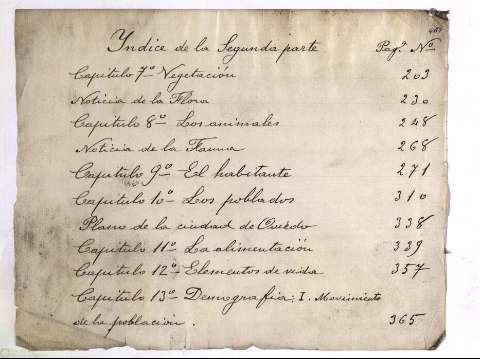 Yndice de la Segunda parte Pag.ª Nº
Capitulo 7º Vegetación 203
Noticia de la Flora 230
Capitulo 8º Los animales 248
Noticia de la Fauna 268
Capitulo 9º El habitante 271
Capitulo 10º Los poblados 310
Plano de la ciudad de Oviedo 338
Capitulo 11º La alimentación 339
Capitulo 12º Elementos de vida 357
Capitulo 13º Demografia: I. Movimiento
de la población. 365